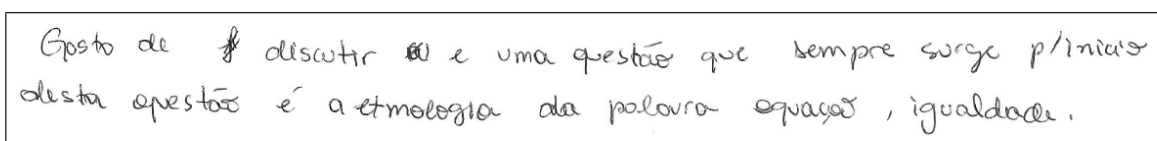 Gosto de discutir e uma questão que sempre surge p/inicio
desta questão é a etmologia da palavra equação, igualdade.